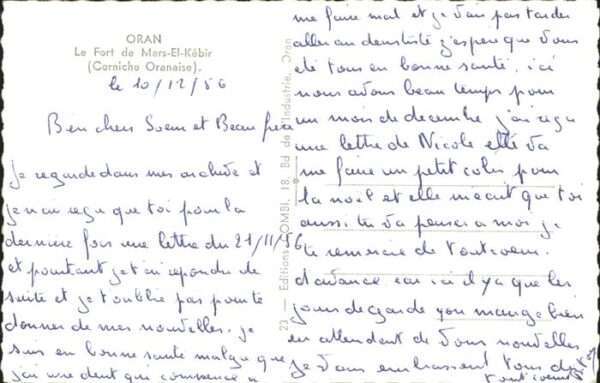 ORAN
Le Fort de Mers-El-Kébir
(Corniche Oranaise).
le 10/12/56
Bien chers Soeur et Beau frère
je regarde dans mes archive et
je n'ai reçu que toi pour la
dernière fois une lettre du 21/11/56
et pourtant je t'ai repondre de
suite et je t'oublie pas pour te
donner de mes nouvelles. je
suis en bonne sante malgre que
j'ai une dent qui commence a
me faire mal et je vais pas tarder
aller au dentiste j'espere que vous
ete tous en bonne santé. ici
nous avons beau temps pour
un mois de decembre j'ai reçu
une lettre de Nicole elle va
me faire un petit colis pour
la noel et elle m'ecrit que toi
aussi tu va penser a moi je
te remercie de tout coeur
d'avance car ici il y a que les
jours de garde you mange bien
en attendent de vous nouvelles
je vous embrassent tous
tout coeur
23 — Editions COMBI, 18, Bd de l'Industrie, Oran